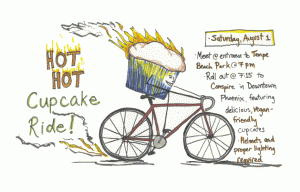 HOT
HOT
Cupcake
Ride!
Saturday, August 1
Meet @ entrance to Tempe
Beach Park @ 7 pm
Roll out @ 7:15 to
Conspire in Downtown
Phoenix featuring
delicious, vegan-
friendly
cupcakes
Helmets and
proper lighting
required